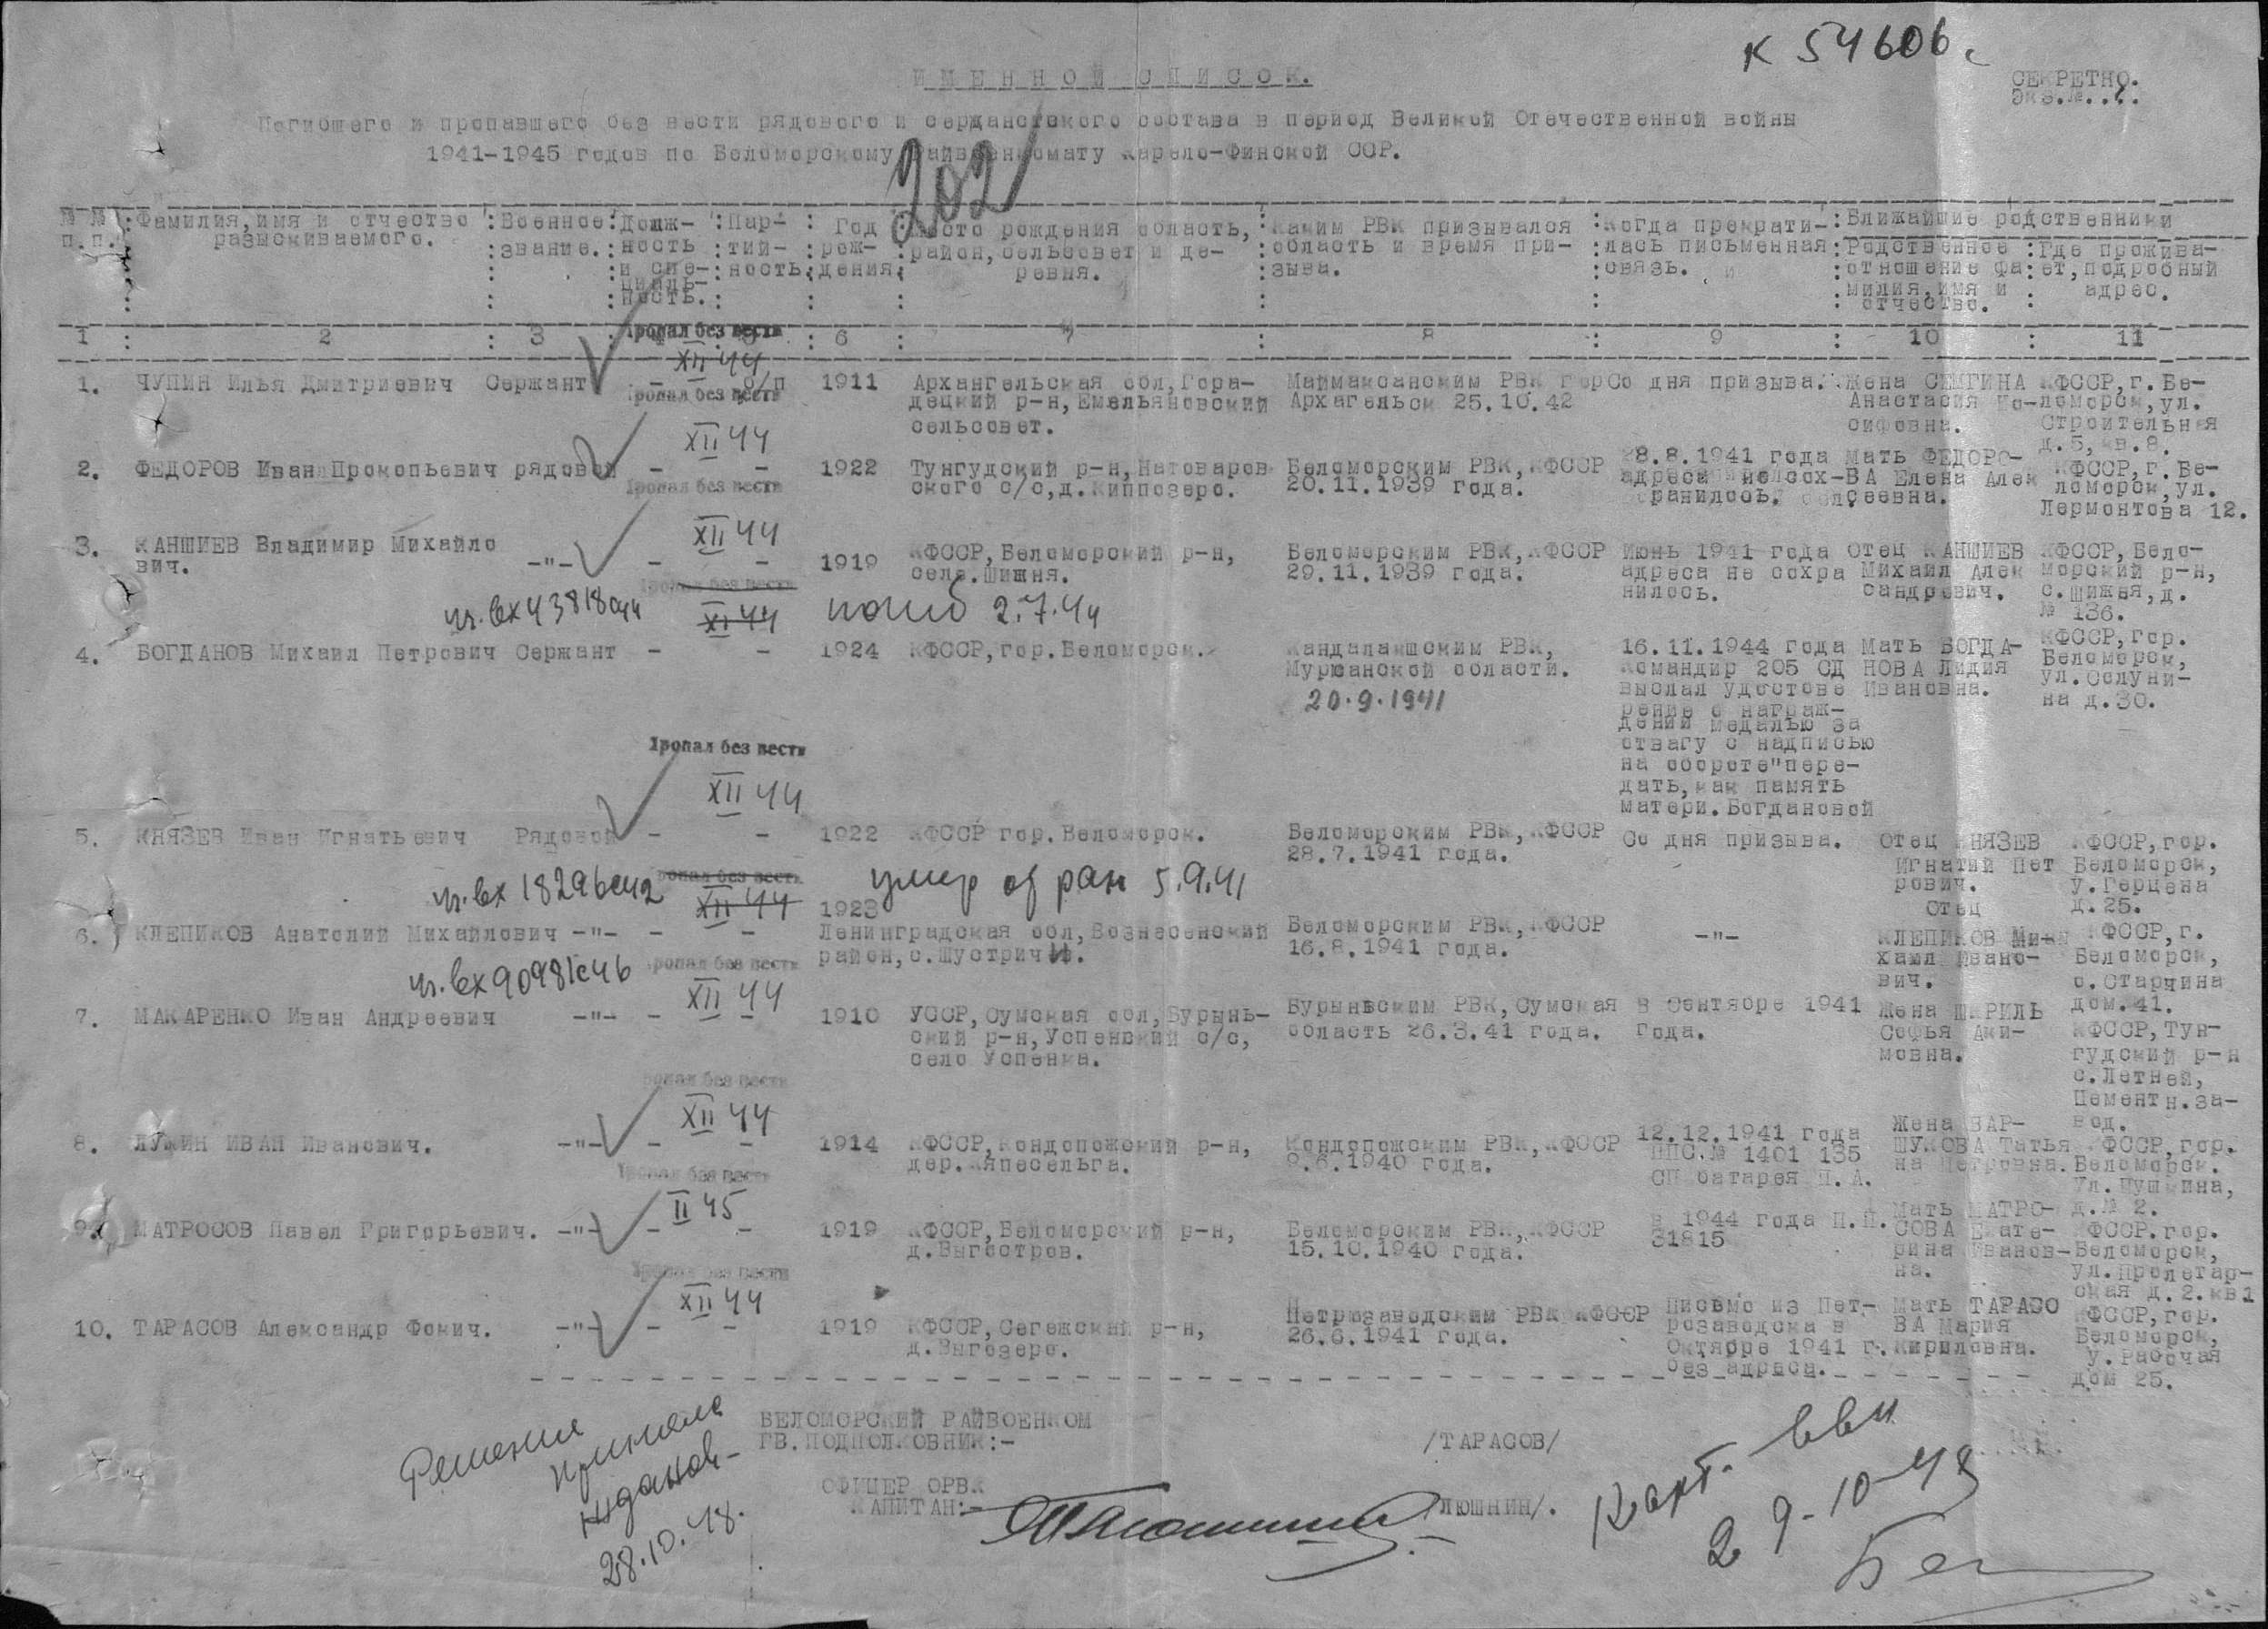 К 54606с
ИМЕННОЙ СПИСОК.
СЕКРЕТНО.
Экз.№...
Погибшего и пропавшего без вести рядового и сержантского состава в период Великой Отечественной войны
1941-1945 годов по Беломорскому Райвоенкомату Карело-Финской ССР.
202
№ № п.п. Фамилия,имя и отчество разыскиваемого. Военное звание. Долж-ность и спе-циаль-ность. Пар-тий-ность. Год рож-дения. Место рождения область, район,сельсовет и де-ревня. Каким РВК призывался область и время при-зыва. Когда прекрати-лась письменная связь. Ближайшие родственники
Родственное отношение фа-милия,имя и отчество. Где прожива-ет,подробный адрес.
1 2 3 5 6 7 8 9 10 11
Пропал без вести
XII 44
1. ЧУПИН Илья Дмитриевич Сержант - б/п 1911 Архангельская обл,Гора- Маймаксанским РВК гор Со дня призыва. Жена СЕМГИНА КФССР,г.Бе-
децкий р-н,Емельяновский Архагельск 25.10.42 Анастасия Ио- ломорск,ул.
сельсовет. сифовна. Строительная
д.5,кв.8.
Пропал без вести
XII 44
2. ФЕДОРОВ Иван Прокопьевич рядовой - - 1922 Тунгудский р-н,Натоваров Беломорским РВК,КФССР 28.8.1941 года Мать ФЕДОРО- КФССР,г.Бе-
ского с/с,д.Киппозеро. 20.11.1939 года. адреса не сох- ВА Елена Алек ломорск,ул.
ранилось. сеевна. Лермонтова 12.
Пропал без вести
XII 44
3. КАНШИЕВ Владимир Михайло -"- - - 1919 КФССР,Беломорский р-н, Беломорским РВК,КФССР Июнь 1941 года Отец КАНШИЕВ КФССР,Бело-
вич. село.Шижня. 29.11.1939 года. адреса не сохра Михаил Алек морский р-н,
нилось. сандрович. с.Шижня,д.
№ 136.
Пропал без вести
вх 43818с44 XI 44 погиб 2.7.44
4. БОГДАНОВ Михаил Петрович Сержант - - 1924 КФССР,гор.Беломорск. Кандалакшским РВК, 16.11.1944 года Мать БОГДА- КФССР,гор.
Мурманской области. Командир 205 СД НОВА Лидия Беломорск,
20.9.1941 выслал удостове Ивановна. ул.Солуни-
рение о награж- на д.30.
дении медалью за
отвагу с надписью
на обороте"пере-
дать,как память
матери.Богдановой
Пропал без вести
XII 44
5. КНЯЗЕВ Иван Игнатьевич Рядовой - - 1922 КФССР гор.Беломорск. Беломорским РВК,КФССР Со дня призыва. Отец КНЯЗЕВ КФССР,гор.
28.7.1941 года. Игнатий Пет Беломорск,
рович. у.Герцена
д.25.
Пропал без вести
вх 18296с42 XII 44 умер от ран 5.9.41
6. КЛЕПИКОВ Анатолий Михайлович -"- - - 1923 Ленинградская обл,Вознесенский Беломорским РВК,КФССР -"- Отец КЛЕПИКОВ Ми- КФССР,г.
район,с.Шустричи. 16.8.1941 года. хаил Ивано- Беломорск,
вич. о.Старчина
дом.41.
вх 90981с46 Пропал без вести
XII 44
7. МАКАРЕНКО Иван Андреевич -"- - - 1910 УССР,Сумская обл,Бурынь- Бурыньским РВК,Сумская в Сентябре 1941 Жена ШКРИЛЬ КФССР,Тун-
ский р-н,Успенский с/с, область 26.3.41 года. года. Софья Аки- гудский р-н
село Успенка. мовна. с.Летней,
Цементн.за-
вод.
Пропал без вести
XII 44
8. ЛУЖИН ИВАН Иванович. -"- - - 1914 КФССР,Кондопожский р-н, Кондопожским РВК,КФССР 12.12.1941 года Жена ВАР- КФССР,гор.
дер.Кяпесельга. 9.6.1940 года. ППС.№ 1401 135 ШУКОВА Татья Беломорск.
СП батарея П.А. на Петровна. Ул.Пушкина,
д.№ 2.
Пропал без вести
II 45
9. МАТРОСОВ Павел Григорьевич. -"- - - 1919 КФССР,Беломорский р-н, Беломорским РВК,КФССР в 1944 года П.П. Мать МАТРО- КФССР.гор.
д.Выгостров. 15.10.1940 года. 31815 СОВА Екате- Беломорск,
рина Иванов- ул.Пролетар-
на. ская д.2.кв1
Пропал без вести
XII 44
10. ТАРАСОВ Александр Фомич. -"- - - 1919 КФССР,Сегежский р-н, Петрозаводским РВК КФССР Письмо из Пет- Мать ТАРАСО КФССР,гор.
д.Выгозеро. 26.6.1941 года. розаводска в ВА Мария Беломорск,
Октябре 1941 г. Кириловна. у.Рабочая
без адреса. дом 25.
БЕЛОМОРСКИЙ РАЙВОЕНКОМ
ГВ.ПОДПОЛКОВНИК:- /ТАРАСОВ/
ОФИЦЕР ОРВК
КАПИТАН:- ЛЮШНИН/.
Решение
приняла
Жданов-
28.10.48.
Карт. ввн
29-10-48